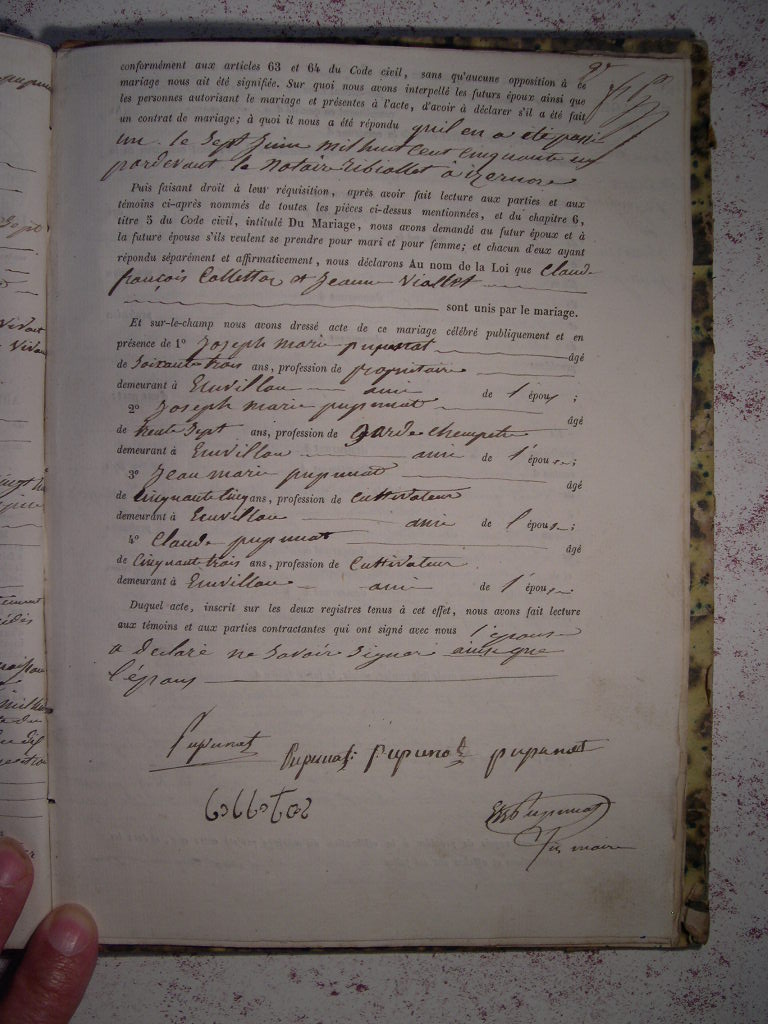 conformément aux articles 63 et 64 du Code civil, sans qu'aucune opposition à ce
mariage nous ait été signifiée. Sur quoi nous avons interpellé les futurs époux ainsi que
les personnes autorisant le mariage et présentes à l'acte, d'avoir à déclarer s'il a été fait
un contrat de mariage; à quoi il nous a été répondu qu'il en a été passé
un. le Sept Juin mil huit cent cinquante un
pardevant le notaire à
Puis faisant droit à leur réquisition, après avoir fait lecture aux parties et aux
témoins ci-après nommés de toutes les pièces ci-dessus mentionnées, et du chapitre 6,
titre 5 du Code civil, intitulé Du Mariage, nous avons demandé au futur époux et à
la future épouse s'ils veulent se prendre pour mari et pour femme; et chacun d'eux ayant
répondu séparément et affirmativement, nous déclarons Au nom de la Loi que Claude
francois Collettaz et Jeanne Viollet
sont unis par le mariage.
Et sur-le-champ nous avons dressé acte de ce mariage célébré publiquement et en
présence de 1° Joseph marie pupunat âgé
de Soixante trois ans, profession de propriétaire
demeurant à Emvillou ami de l'époux ;
2° Joseph marie pupunat âgé
de trente Sept ans, profession de garde champetre
demeurant à Emvillou ami de l'épouse;
3° Jean marie pupunat âgé
de Cinquante Cinq ans, profession de Cultivateur
demeurant à Emvillou ami de l'épouse;
4° Claude pupunat âgé
de Cinquante trois ans, profession de Cultivateur
demeurant à Emvillou ami de l'épouse.
Duquel acte, inscrit sur les deux registres tenus à cet effet, nous avons fait lecture
aux témoins et aux parties contractantes qui ont signé avec nous l'épouse
a déclaré ne Savoir Signer ainsi que
l'épous
Pupunat
Pupunat pupunat pupunat
Pupunat
maire